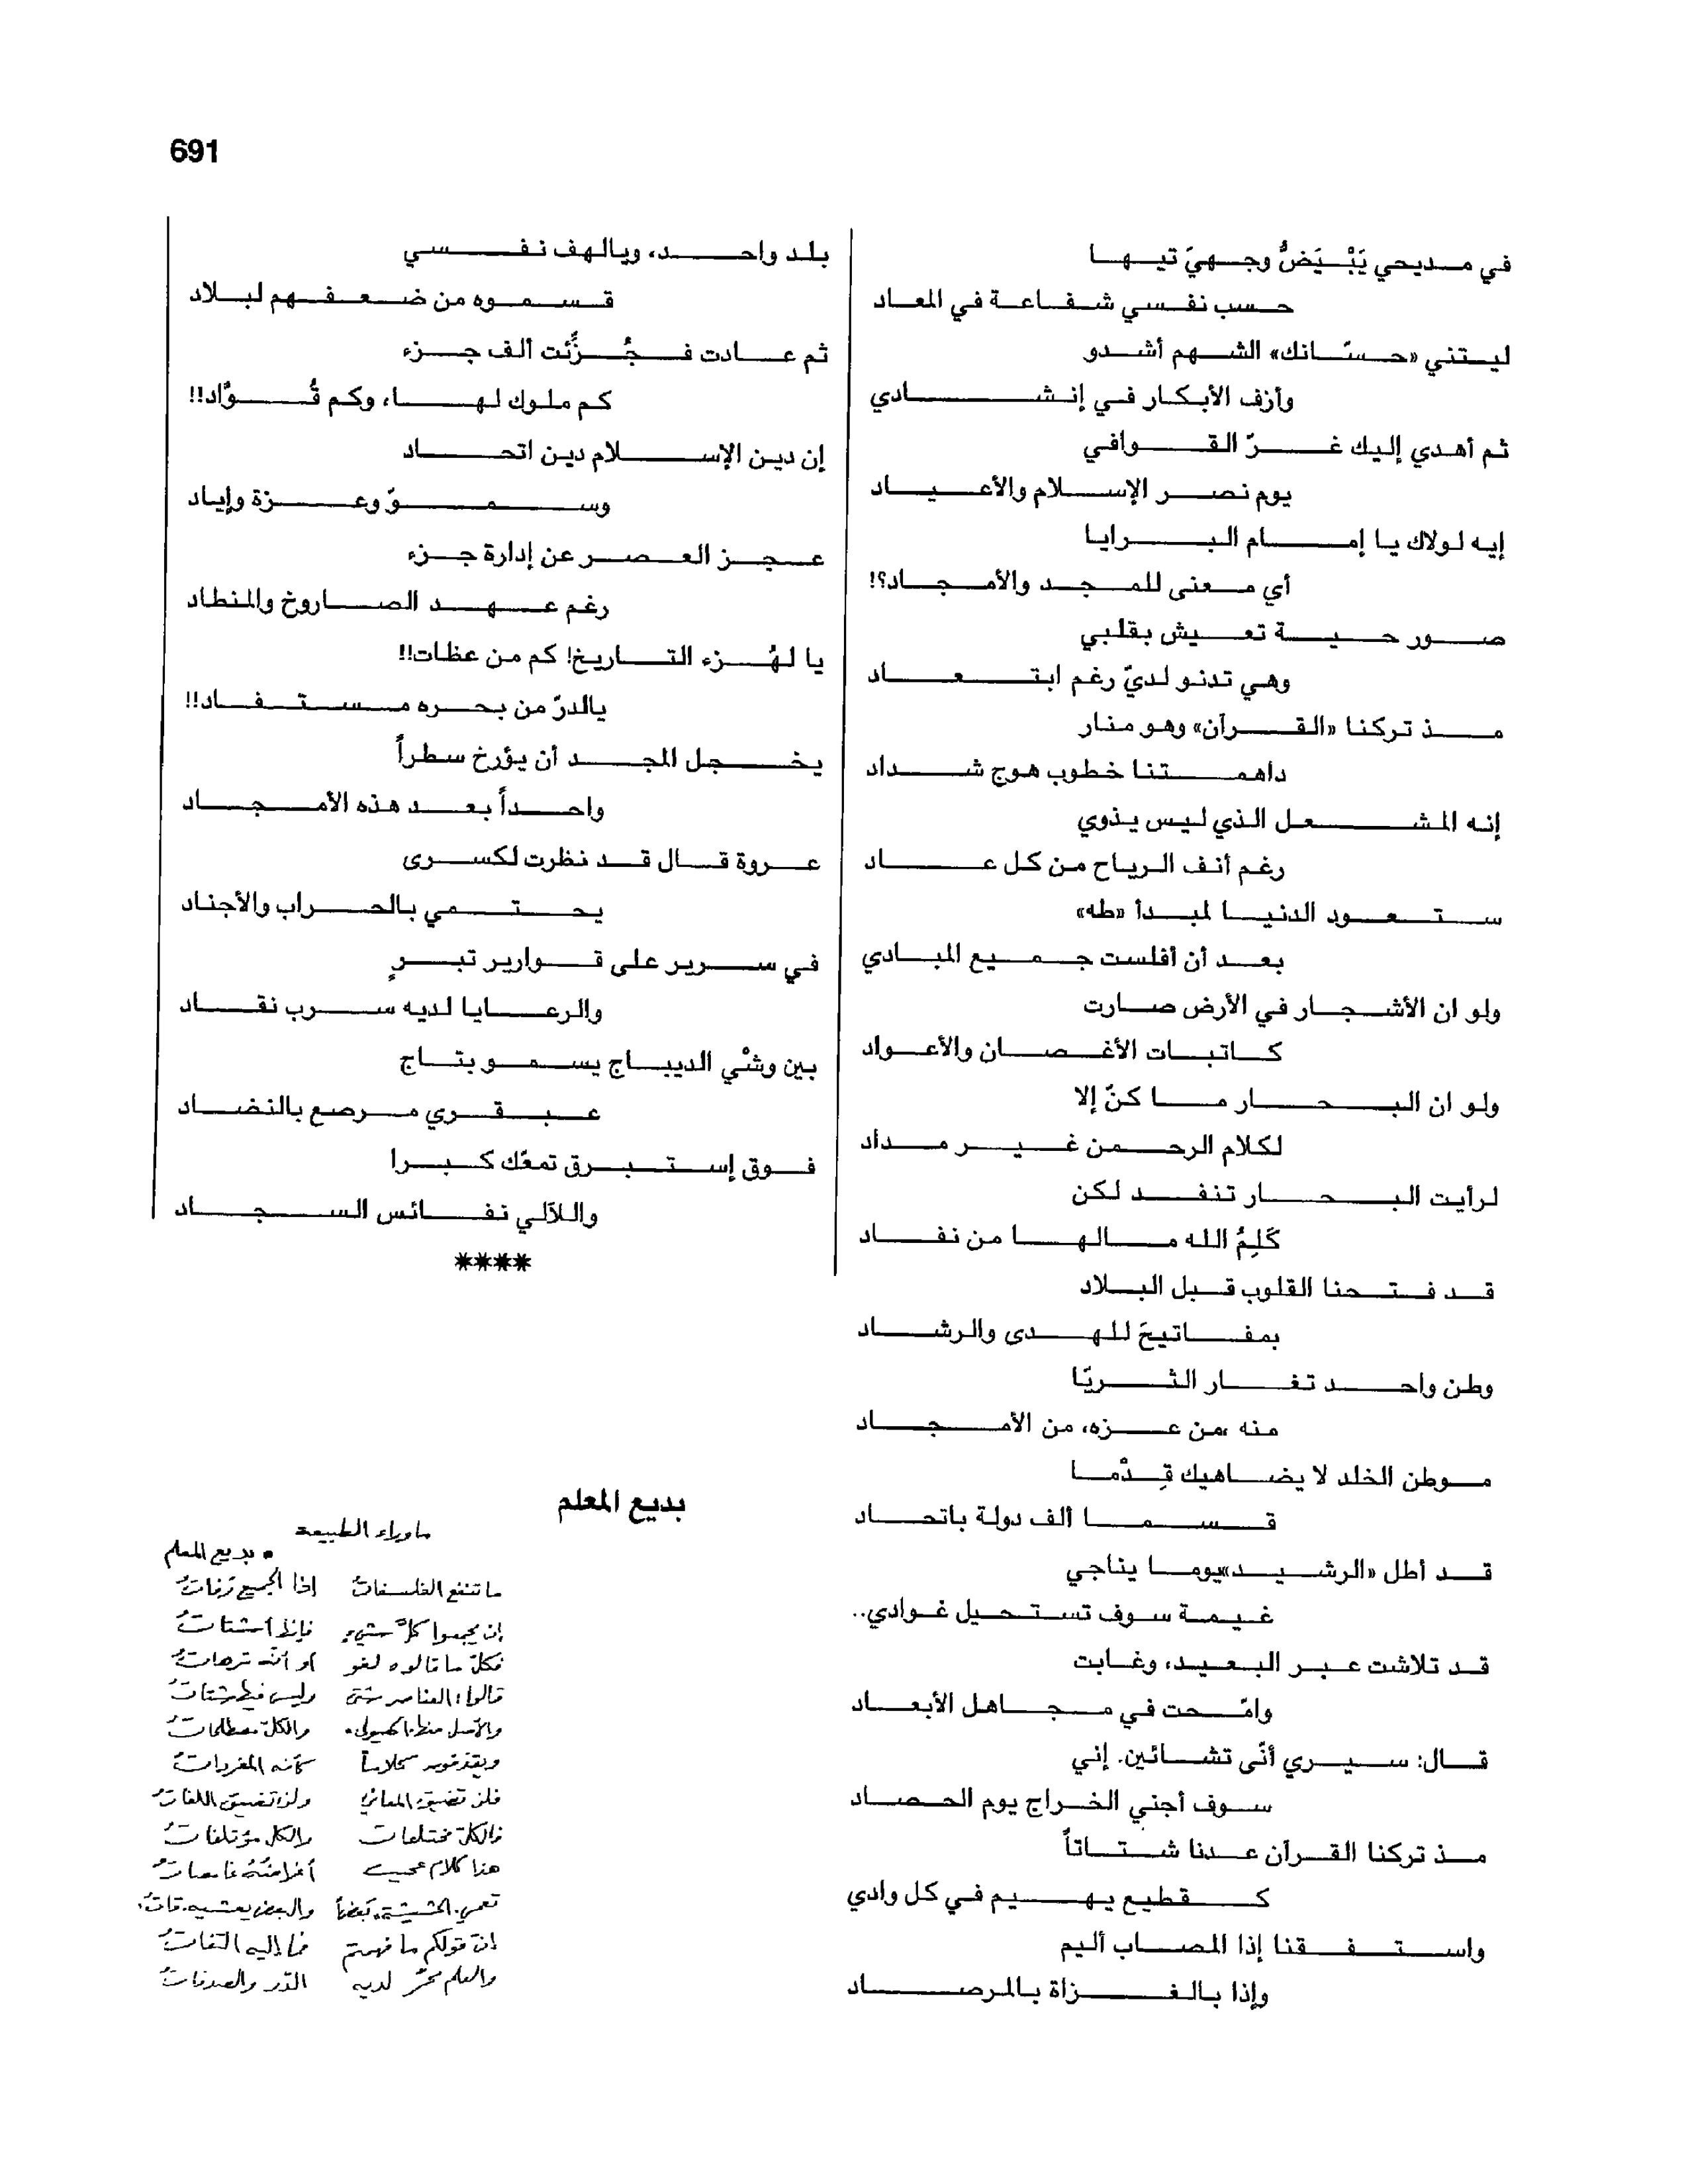 691
في مديحي يَبْيَضُّ وجهيَ تيها
حسب نفسي شفاعة في المعاد
ليتني «حسّانك» الشهم أشدو
وأزف الأبكار في إنشادي
ثم أهدي إليك غرّ القوافي
يوم نصر الإسلام والأعياد
إيه لولاك يا إمام البرايا
أي معنى للمجد والأمجاد؟!
صور حية تعيش بقلبي
وهي تدنو لديّ رغم ابتعاد
مذ تركنا «القرآن» وهو منار
داهمتنا خطوب هوج شداد
إنه المشعل الذي ليس يذوي
رغم أنف الرياح من كل عاد
ستعود الدنيا لمبدأ «طه»
بعد أن أفلست جميع المبادي
ولو ان الأشجار في الأرض صارت
كاتبات الأغصان والأعواد
ولو ان البحار ما كنّ إلا
لكلام الرحمن غير مداد
لرأيت البحار تنفد لكن
كَلِمُ الله مالها من نفاد
قد فتحنا القلوب قبل البلاد
بمفاتيحَ للهدى والرشاد
وطن واحد تغار الثريّا
منه ،من عزه، من الأمجاد
موطن الخلد لا يضاهيك قِدْما
قسما ألف دولة باتحاد
قد أطل «الرشيد»يوما يناجي
غيمة سوف تستحيل غوادي..
قد تلاشت عبر البعيد، وغابت
وامّحت في مجاهل الأبعاد
قال: سيري أنّى تشائين. إني
سوف أجني الخراج يوم الحصاد
مذ تركنا القرآن عدنا شتاتاً
كقطيع يهيم في كل وادي
واستفقنا إذا المصاب أليم
وإذا بالغزاة بالمرصاد
بلد واحد، ويالهف نفسي
قسموه من ضعفهم لبلاد
ثم عادت فجُزِّئت ألف جزء
كم ملوك لها، وكم قُوّاد!!
إن دين الإسلام دين اتحاد
وسموّ وعزة وإياد
عجز العصر عن إدارة جزء
رغم عهد الصاروخ والمنطاد
يا لهُزء التاريخ! كم من عظات!!
يالدرّ من بحره مستفاد!!
يخجل المجد أن يؤرخ سطراً
واحداً بعد هذه الأمجاد
عروة قال قد نظرت لكسرى
يحتمي بالحراب والأجناد
في سرير على قوارير تبرٍ
والرعايا لديه سرب نقاد
بين وشْي الديباج يسمو بتاج
عبقري مرصع بالنضاد
فوق إستبرق تمعّك كبرا
واللآلي نفائس السجاد
****
بديع المعلم
ماوراء الطبيعة
• بديع المعلم
ما تنفع الفلسفاتُ إذا الجميع رفاتُ
إن يجمعوا كلّ شيء فإنها أشتاتُ
فكلّ ما قالوه لغو أو أنه ترهاتُ
قالوا: العناصر شتى وليس شتاتُ
والأصل هيولى والكلّ مصطلحاتُ
كلاماً كأنه المفرداتُ
فلن تضيق المعاني ولن تضيق اللغاتُ
فالكلّ مختلفات والكل مؤتلفاتُ
هذا كلام عجيب أغراضُهُ غامضاتُ
والبعض
إنّ قولكم ما فهمتم فما إليه التفاتُ
والعلم بحرٌ لديه الدّر والصدفاتُ